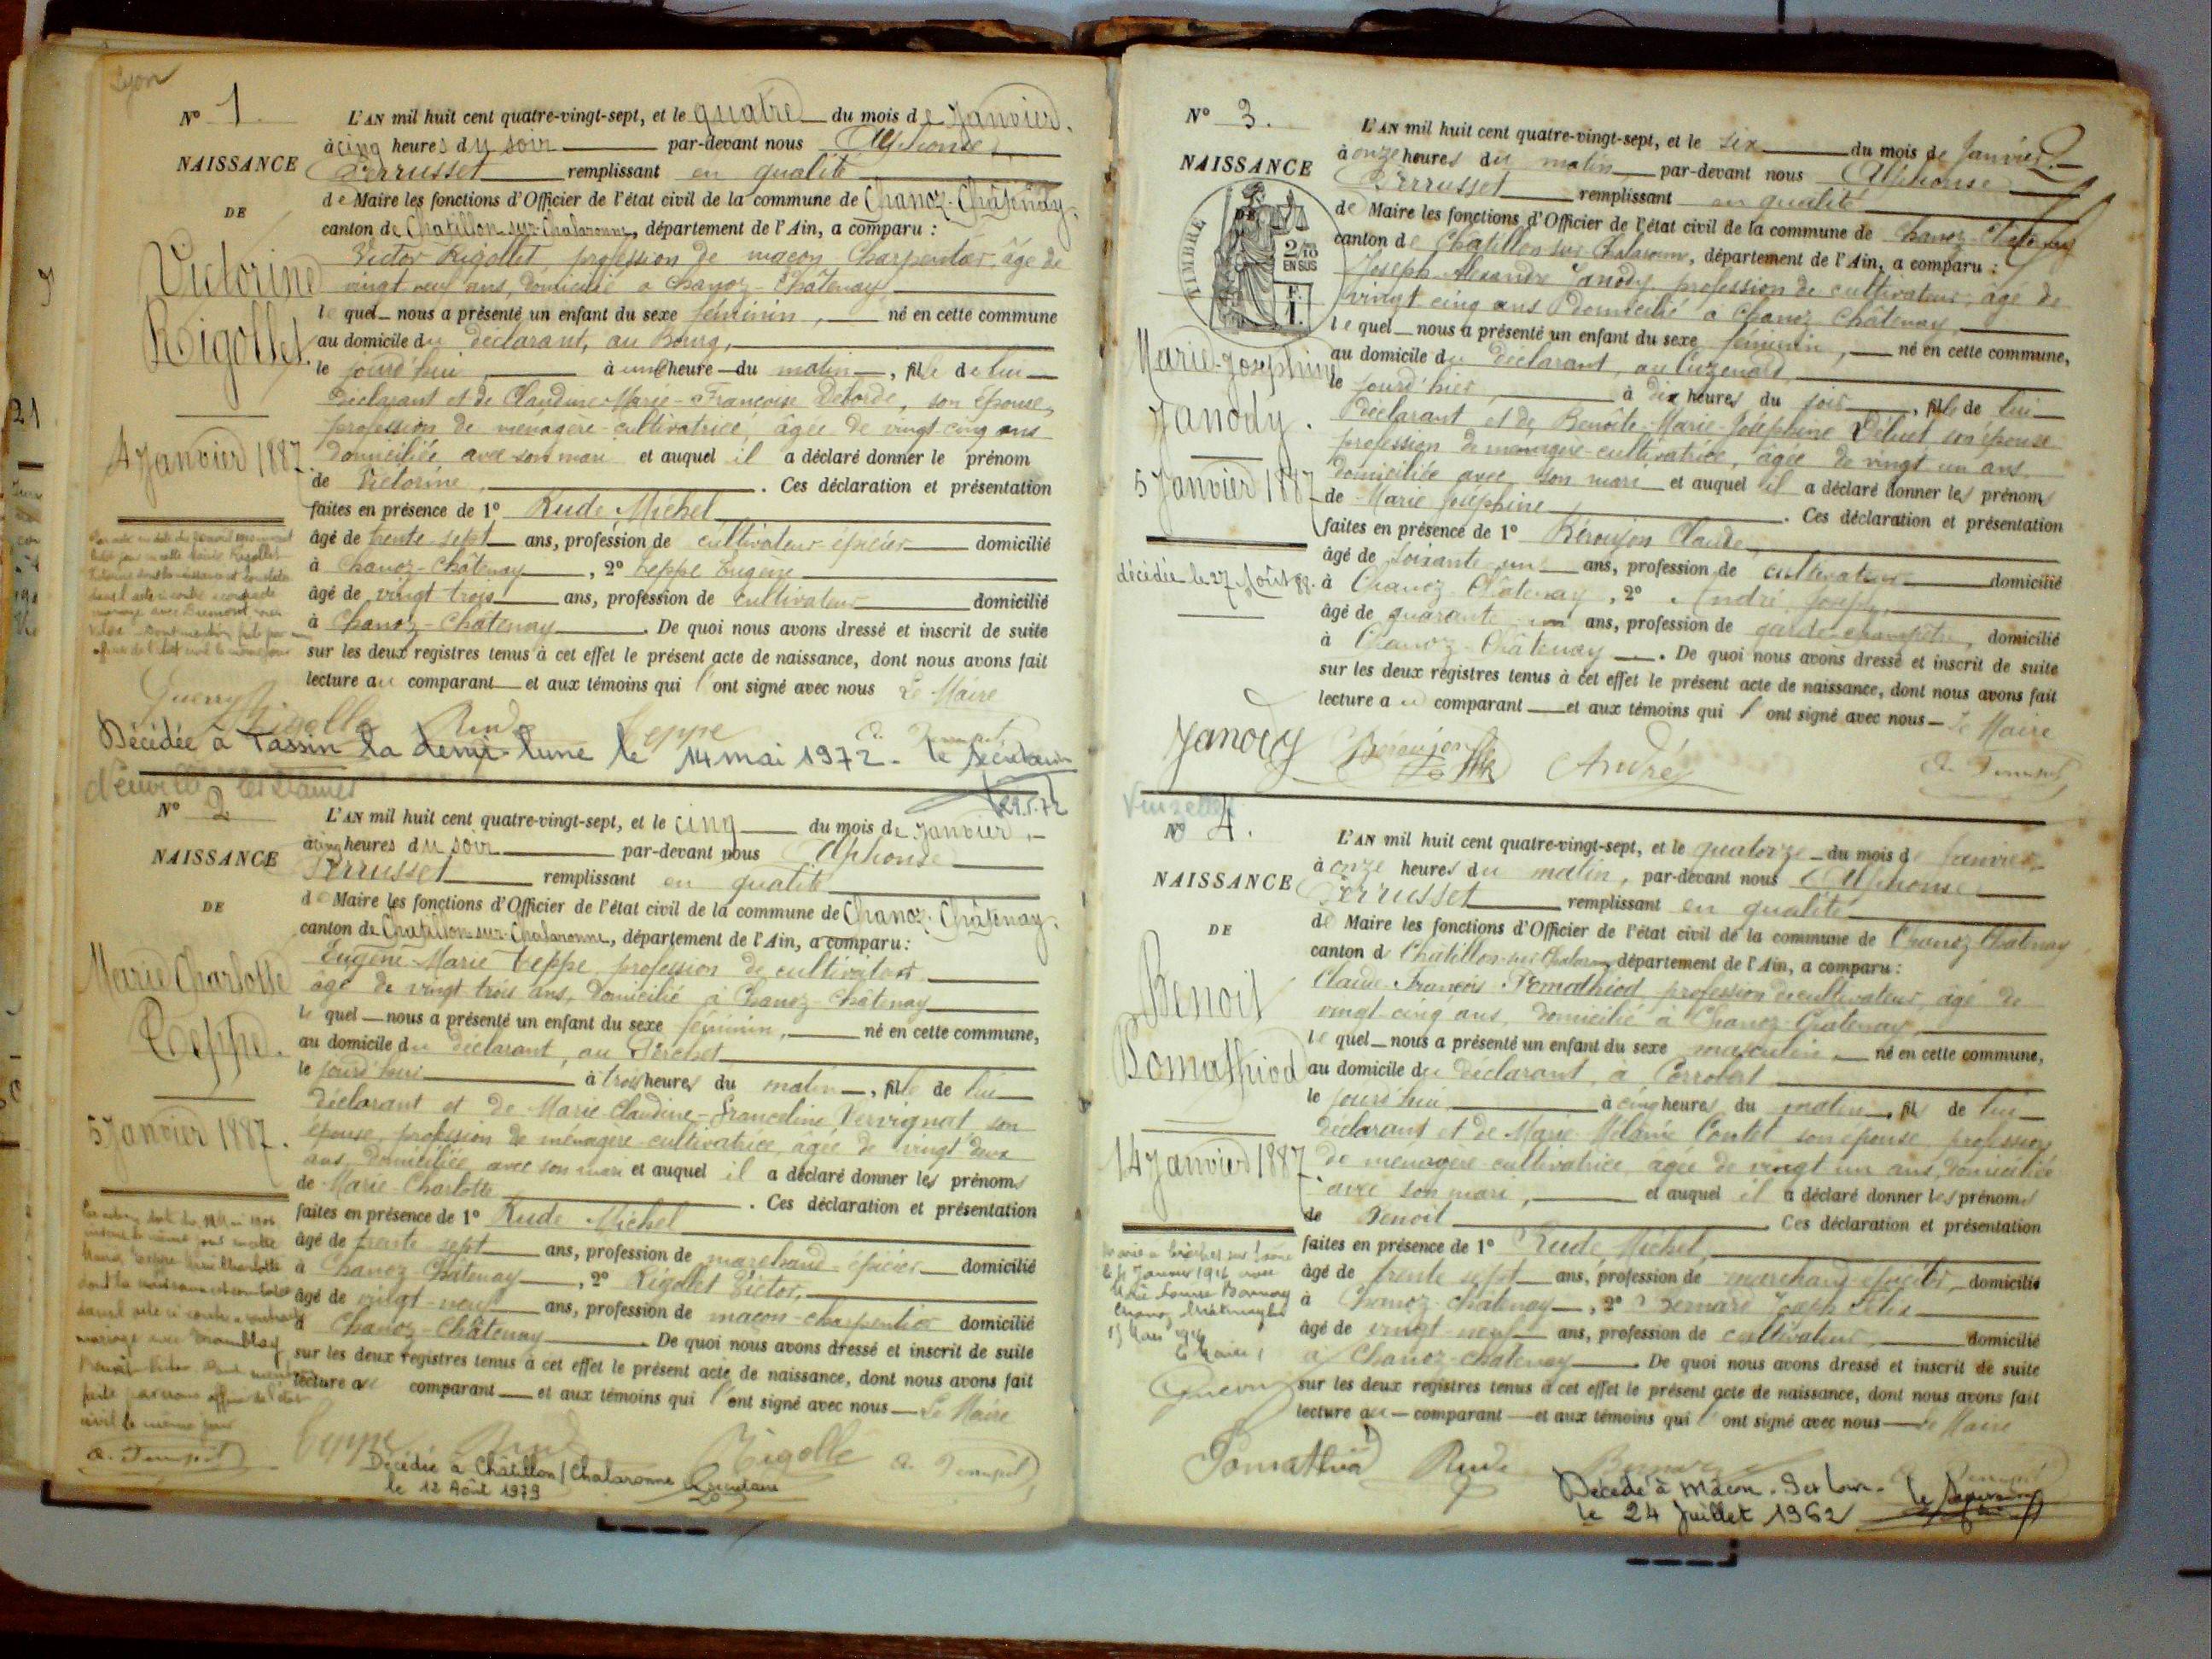 Lyon
N° 1.
NAISSANCE
DE
Victorine
Rigollet.
4 Janvier 1887.
L'AN mil huit cent quatre-vingt-sept, et le quatre du mois de Janvier.
à cinq heures du soir par-devant nous Alphonse
Perrusset remplissant en qualité
de Maire les fonctions d'Officier de l'état civil de la commune de Chanoz-Châtenay,
canton de Chatillon-sur-Chalaronne, département de l'Ain, a comparu :
Victor Rigollet, profession de maçon Charpentier, âgé de
vingt neuf ans, domicilié à Chanoz-Châtenay
lequel nous a présenté un enfant du sexe féminin, né en cette commune
au domicile du déclarant, au Bourg,
le jourd'hui à une heure du matin, fille de lui
déclarant et de Claudine-Marie-Françoise Deborde, son épouse,
profession de ménagère-cultivatrice, âgée de vingt cinq ans
domiciliée avec son mari et auquel il a déclaré donner le prénom
de Victorine. Ces déclaration et présentation
faites en présence de 1° Rude Michel
âgé de trente-sept ans, profession de cultivateur-épicier domicilié
à Chanoz-Châtenay, 2° Teppe Eugène
âgé de vingt trois ans, profession de cultivateur domicilié
à Chanoz-Châtenay. De quoi nous avons dressé et inscrit de suite
sur les deux registres tenus à cet effet le présent acte de naissance, dont nous avons fait
lecture au comparant et aux témoins qui l'ont signé avec nous Le Maire
Rigolle Rude Teppe
Décédée à Tassin la demi-lune le 14 mai 1972 - le secrétaire
29.5.72
Neuville les Dames
N° 2
NAISSANCE
DE
Marie Charlotte
Teppe.
5 Janvier 1887.
L'AN mil huit cent quatre-vingt-sept, et le cinq du mois de Janvier,
à cinq heures du soir par-devant nous Alphonse
Perrusset remplissant en qualité
de Maire les fonctions d'Officier de l'état civil de la commune de Chanoz-Châtenay.
canton de Chatillon-sur-Chalaronne, département de l'Ain, a comparu :
Eugène-Marie Teppe, profession de cultivateur
âgé de vingt trois ans, domicilié à Chanoz-Châtenay
lequel nous a présenté un enfant du sexe féminin, né en cette commune,
au domicile du déclarant, au
le jourd'hui à trois heures du matin, fille de lui
déclarant et de Marie-Claudine-Franceline Vervignat, son
épouse, profession de ménagère-cultivatrice, âgée de vingt deux
ans, domiciliée avec son mari et auquel il a déclaré donner les prénoms
de Marie Charlotte. Ces déclaration et présentation
faites en présence de 1° Rude Michel
âgé de trente sept ans, profession de marchand-épicier domicilié
à Chanoz-Châtenay, 2° Rigollet Victor,
âgé de vingt-neuf ans, profession de maçon-charpentier domicilié
à Chanoz-Châtenay. De quoi nous avons dressé et inscrit de suite
sur les deux registres tenus à cet effet le présent acte de naissance, dont nous avons fait
lecture au comparant et aux témoins qui l'ont signé avec nous Le Maire
Teppe Rude Rigolle
Décédée à Châtillon/Chalaronne Le secrétaire
le 12 Août 1979
N° 3.
NAISSANCE
DE
TIMBRE
2/10
EN SUS
F.
1.
Marie-Joséphine
Janody.
5 Janvier 1887
décédée le 27 Août 88.
L'AN mil huit cent quatre-vingt-sept, et le six du mois de Janvier.
2
à onze heures du matin par-devant nous Alphonse
Perrusset remplissant en qualité
de Maire les fonctions d'Officier de l'état civil de la commune de Chanoz-Châtenay
canton de Châtillon sur Chalaronne, département de l'Ain, a comparu :
Joseph Alexandre Janody, profession de cultivateur, âgé de
vingt cinq ans domicilié à Chanoz-Châtenay,
lequel nous a présenté un enfant du sexe féminin, né en cette commune,
au domicile du déclarant, au
le jourd'hier, à dix heures du soir, fille de lui
déclarant et de Benoîte-Marie-Joséphine son épouse
profession de ménagère-cultivatrice, âgée de vingt un ans
domiciliée avec son mari et auquel il a déclaré donner les prénoms
de Marie Joséphine. Ces déclaration et présentation
faites en présence de 1° Béroujon Claude,
âgé de soixante-un ans, profession de cultivateur domicilié
à Chanoz-Châtenay, 2° André Joseph,
âgé de quarante ans, profession de garde-champêtre, domicilié
à Chanoz-Châtenay. De quoi nous avons dressé et inscrit de suite
sur les deux registres tenus à cet effet le présent acte de naissance, dont nous avons fait
lecture au comparant et aux témoins qui l'ont signé avec nous Le Maire
Janody Béroujon André
Vinzelles
N° 4.
NAISSANCE
DE
Benoit
Pomathiod
14 Janvier 1887
L'AN mil huit cent quatre-vingt-sept, et le quatorze du mois de Janvier
à onze heures du matin, par-devant nous Alphonse
Perrusset remplissant en qualité
de Maire les fonctions d'Officier de l'état civil de la commune de Chanoz Châtenay
canton de Châtillon-sur-Chalaronne, département de l'Ain, a comparu :
Claude-François Pomathiod, profession de cultivateur, âgé de
vingt-cinq ans, domicilié à Chanoz-Châtenay,
lequel nous a présenté un enfant du sexe masculin, né en cette commune,
au domicile du déclarant, à Corrobert
le jourd'hui à cinq heures du matin, fils de lui
déclarant et de Marie-Mélanie Contet son épouse, profession
de ménagère-cultivatrice, âgée de vingt un ans, domiciliée
avec son mari, et auquel il a déclaré donner les prénoms
de Benoit. Ces déclaration et présentation
faites en présence de 1° Rude Michel,
âgé de trente sept ans, profession de marchand-épicier, domicilié
à Chanoz-châtenay, 2° Bernard Joseph
âgé de vingt-neuf ans, profession de cultivateur, domicilié
à Chanoz-châtenay. De quoi nous avons dressé et inscrit de suite
sur les deux registres tenus à cet effet le présent acte de naissance, dont nous avons fait
lecture au comparant et aux témoins qui l'ont signé avec nous Le Maire
Pomathiod Rude Bernard
Décédé à Mâcon. S et Loire. le
le 24 Juillet 1962